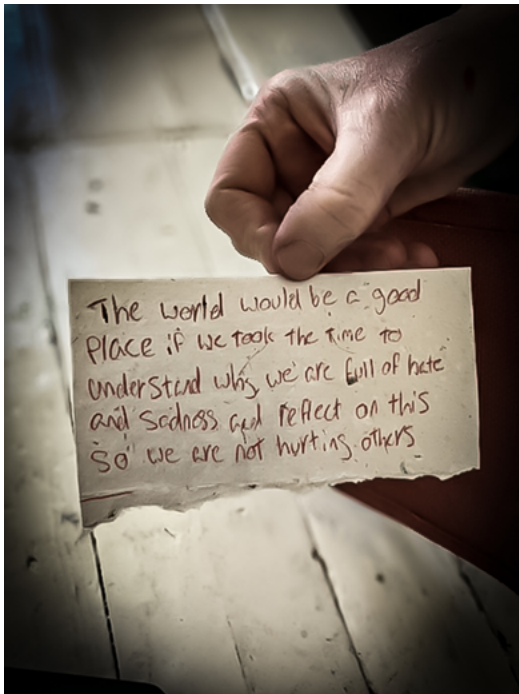 The world would be a good
Place if we took the time to
understand why we are full of hate
and sadness and reflect on this
so we are not hurting others